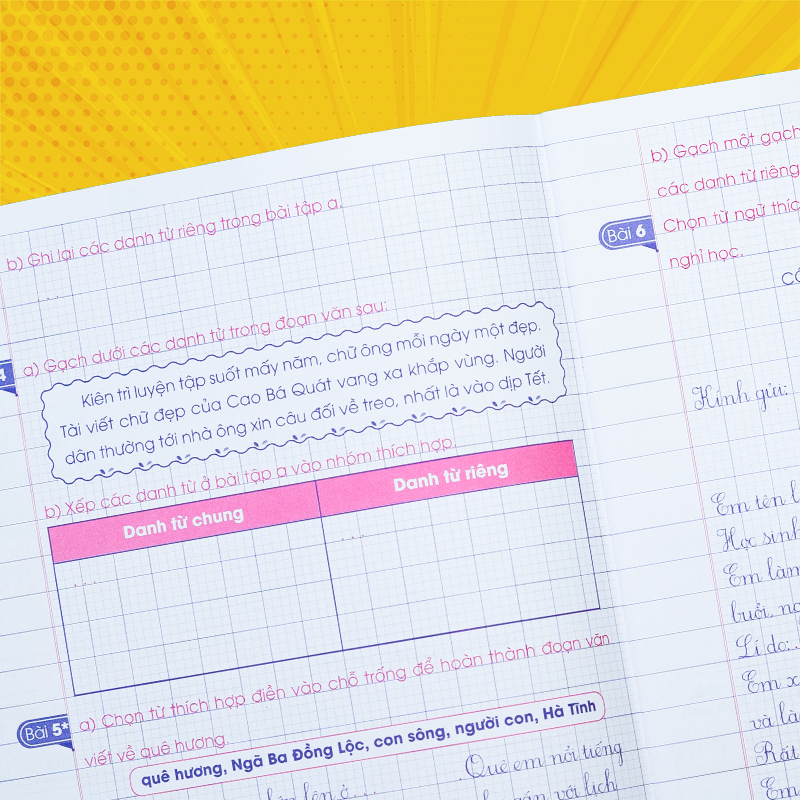 b) Ghi lại các danh từ riêng trong bài tập a.
...
4
a) Gạch dưới các danh từ trong đoạn văn sau:
Kiên trì luyện tập suốt mấy năm, chữ ông mỗi ngày một đẹp.
Tài viết chữ đẹp của Cao Bá Quát vang xa khắp vùng. Người
dân thường tới nhà ông xin câu đối về treo, nhất là vào dịp Tết.
b) Xếp các danh từ ở bài tập a vào nhóm thích hợp.
Danh từ chung
Danh từ riêng
...
...
Bài 5*
a) Chọn từ thích hợp điền vào chỗ trống để hoàn thành đoạn văn
viết về quê hương.
quê hương, Ngã Ba Đồng Lộc, con sông, người con, Hà Tĩnh
lớn lên ở... .Quê em nổi tiếng
gắn với lịch
b) Gạch một gạch
các danh từ riêng
Bài 6
Chọn từ ngữ thíc
nghỉ học.
Kính gửi:
Em tên l
Học sinh
Em làm
buổi, ng
Lí do:
Em x
và là
Rất
Em